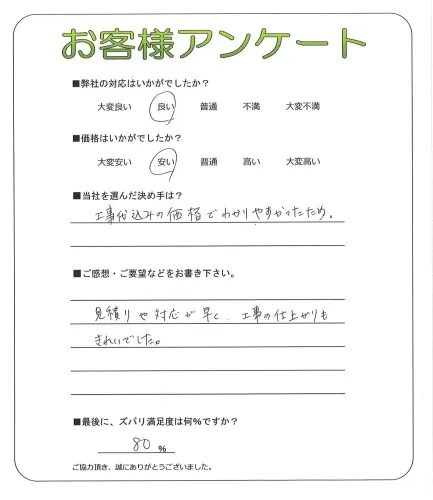 お客様アンケート
■弊社の対応はいかがでしたか？
大変良い 良い 普通 不満 大変不満
■価格はいかがでしたか？
大変安い 安い 普通 高い 大変高い
■当社を選んだ決め手は？
工事代込みの価格でわかりやすかったため。
■ご感想・ご要望などをお書き下さい。
見積りや対応が早く、工事の仕上がりも
きれいでした。
■最後に、ズバリ満足度は何％ですか？
80 ％
ご協力頂き、誠にありがとうございました。